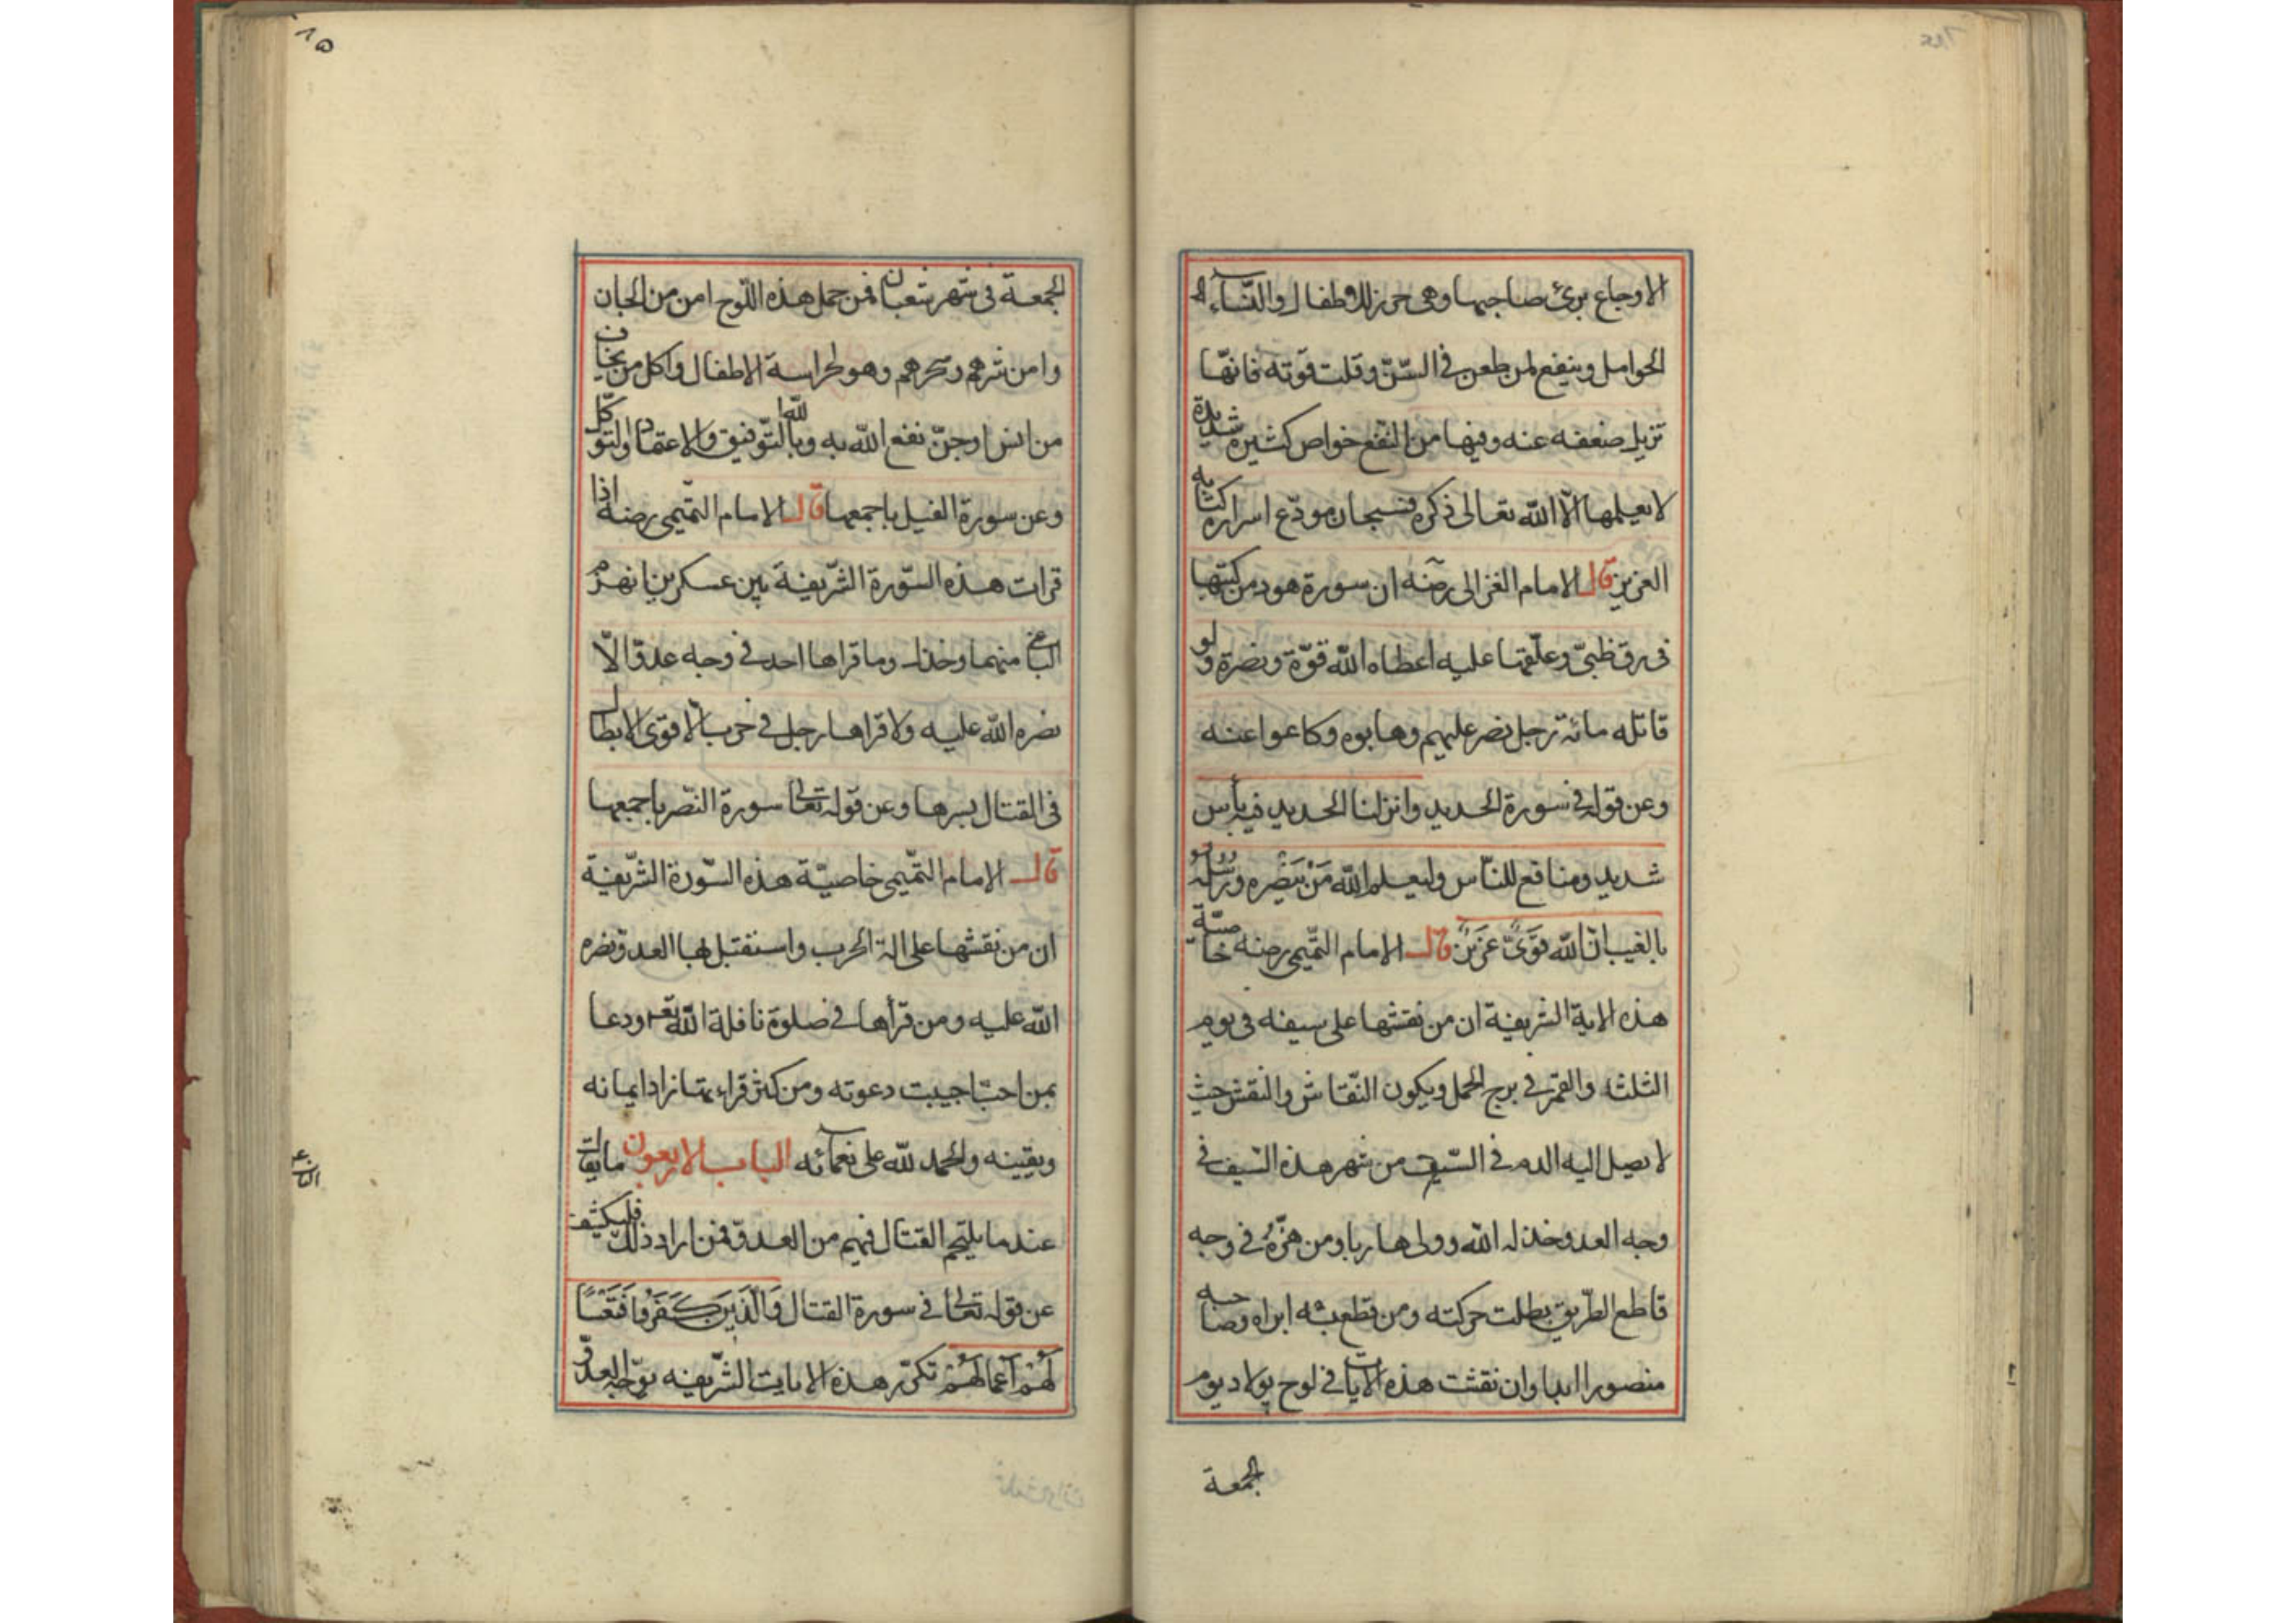 الاوجاع برئ صاحبها وهى حرز للاطفال والنسآء
الحوامل وينفع لمن طعن فى السّنّ وقلت قوّته فانّها
تزيل ضعفه عنه وفيها من النّفع خواص كثيرة شديدة
لا يعلمها الّا الله تعالى ذكره فسبحان مودّع اسراره كتابه
العزيز قال الامام الغزالى رضه ان سورة هود من كتبها
فى رق ظبىّ وعلّقها عليه اعطاه الله قوّة ونصرة ولو
قاتله مائة رجل نصر عليهم وهابوه وكاعوا عنه
وعن قوله فى سورة الحديد وانزلنا الحديد فيه بأس
شديد ومنافع للنّاس وليعلم الله مَنْ يَنْصُره ورُسُلَهُ
بالغيب انّ الله قَوِىٌّ عَزيزٌ قال الامام التّميمى رضه خاصيّة
هذه الاية الشريفة ان من نقشها على سيفه فى يوم
الثلثا والقمر فى برج الحمل ويكون النّقاش والنقش حيث
لا يصل اليه الدم فى السّيف من شهر هذه السّيف فى
وجه العدو خذله الله وولى هاربا ومن هزّهُ فى وجه
قاطع الطّريق بطلت حركته ومن قطع بشه ابراه وصاحبه
منصورا ابدا وان نقشت هذه الايات فى لوح پولاد يوم
الجمعة
١٥
الجمعة فى شهر شعبان فمن حمل هذه اللّوح امن من الجان
وامن شرهم وسحرهم وهو لحراسة الاطفال واكل من يخاف
من انس او جنّ نفع الله به وبالله التّوفيق والاعتماد والتوكّل
وعن سورة الفيل باجمعها قال الامام التّميمى رضه اذا
قرات هذه السّورة الشّريفة بين عسكرين انهزم
الباغى منهما وخذل وما قراها احد فى وجه عدوّ الّا
نصره الله عليه ولا قراها رجل فى حرب الّا قوى الابطال
فى القتال بسرها وعن قوله تعالى سورة النّصر باجمعها
قال الامام التّميمى خاصيّة هذه السّورة الشّريفة
ان من نقشها على الة الحرب واستقبل بها العدو نصره
الله عليه ومن قرأها فى صلوة نافلة الله تعـ ودعا
بمن احبّ اجيبت دعوته ومن كثر قراءتها زاد ايمانه
ويقينه والحمد لله على نعمآئه الباب الاربعون ما يقال
عند ما يلتحم القتال فيهم من العدوّ فمن اراد ذلك فليكثر
عن قوله تعالى فى سورة القتال وَالَّذينَ كَفَرُوا فَتَعْسًا
لَهُمْ اَعمالَهُمْ تكرّر هذه الايات الشّريفه بوجه العدوّ